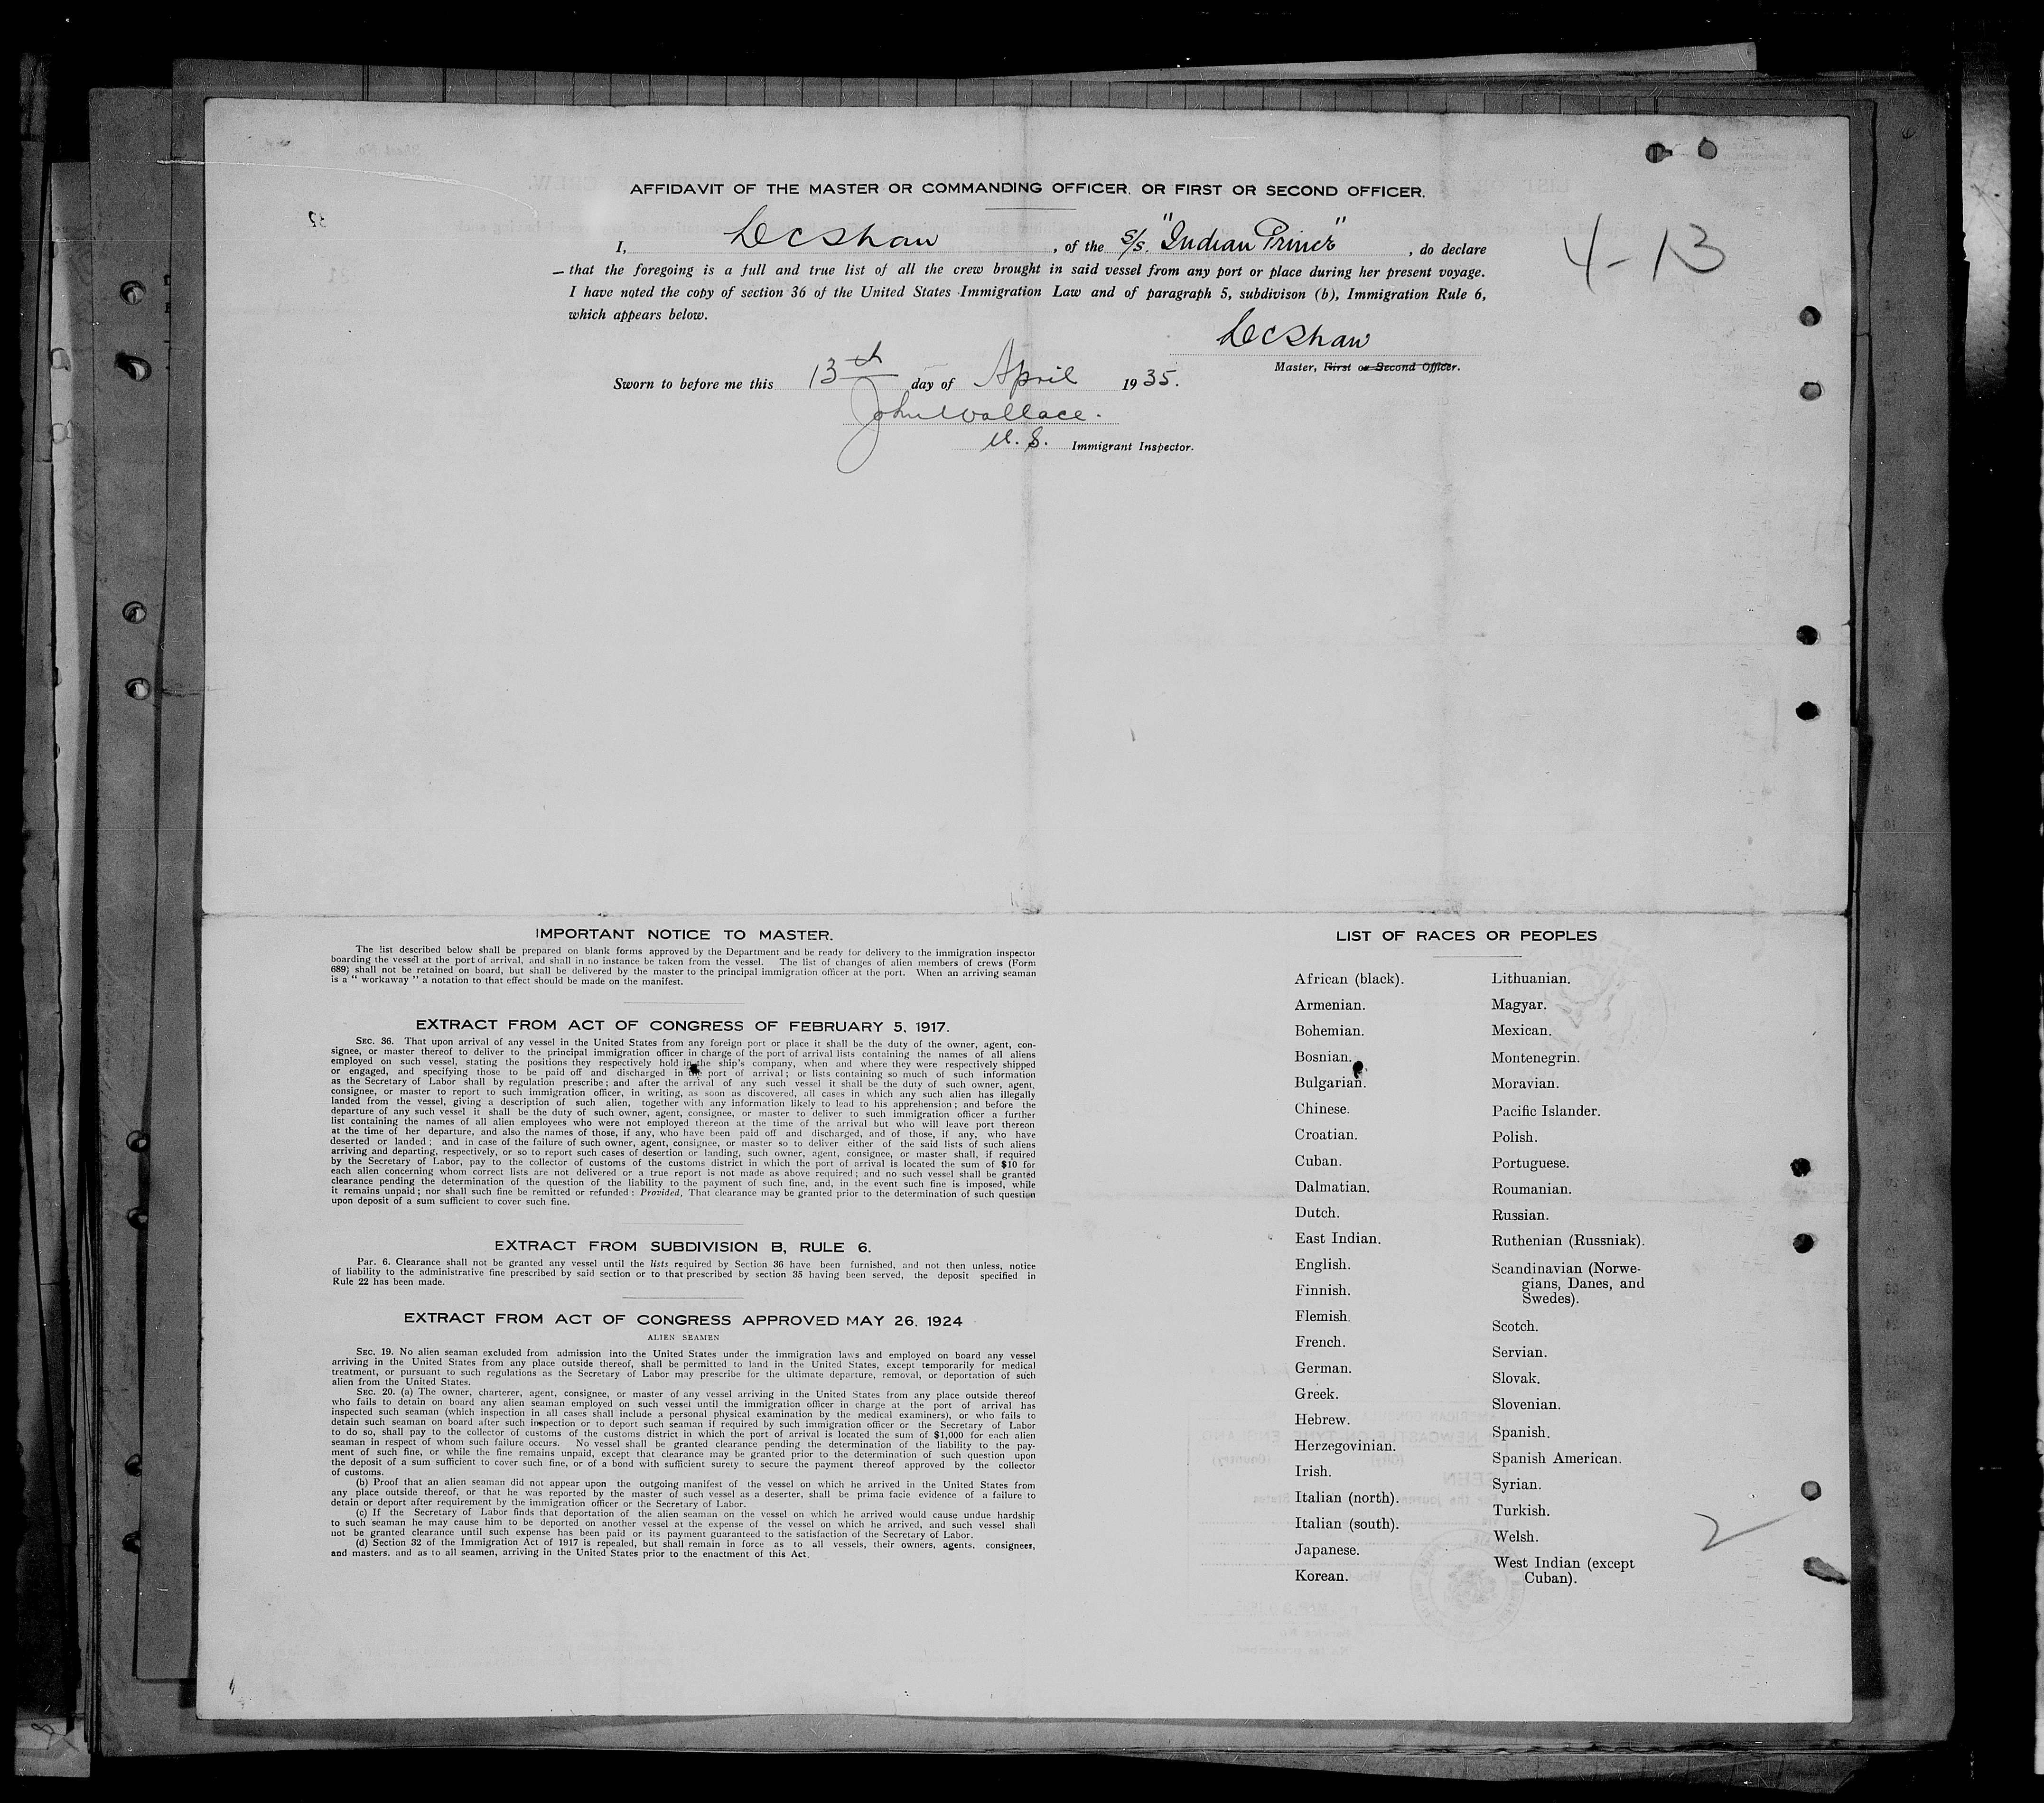 AFFIDAVIT OF THE MASTER OR COMMANDING OFFICER, OR FIRST OR SECOND OFFICER.
I, , of the S/S. "Indian Prince" , do declare
that the foregoing is a full and true list of all the crew brought in said vessel from any port or place during her present voyage.
I have noted the copy of section 36 of the United States Immigration Law and of paragraph 5, subdivison (b), Immigration Rule 6,
which appears below.
4-13
Master, First or Second Officer.
Sworn to before me this 13th day of April 1935.
John Wallace.
U. S. Immigrant Inspector.
IMPORTANT NOTICE TO MASTER.
The list described below shall be prepared on blank forms approved by the Department and be ready for delivery to the immigration inspector
boarding the vessel at the port of arrival, and shall in no instance be taken from the vessel. The list of changes of alien members of crews (Form
689) shall not be retained on board, but shall be delivered by the master to the principal immigration officer at the port. When an arriving seaman
is a " workaway " a notation to that effect should be made on the manifest.
EXTRACT FROM ACT OF CONGRESS OF FEBRUARY 5, 1917.
SEC. 36. That upon arrival of any vessel in the United States from any foreign port or place it shall be the duty of the owner, agent, con-
signee, or master thereof to deliver to the principal immigration officer in charge of the port of arrival lists containing the names of all aliens
employed on such vessel, stating the positions they respectively hold in the ship's company, when and where they were respectively shipped
or engaged, and specifying those to be paid off and discharged in the port of arrival; or lists containing so much of such information
as the Secretary of Labor shall by regulation prescribe; and after the arrival of any such vessel it shall be the duty of such owner, agent,
consignee, or master to report to such immigration officer, in writing, as soon as discovered, all cases in which any such alien has illegally
landed from the vessel, giving a description of such alien, together with any information likely to lead to his apprehension; and before the
departure of any such vessel it shall be the duty of such owner, agent, consignee, or master to deliver to such immigration officer a further
list containing the names of all alien employees who were not employed thereon at the time of the arrival but who will leave port thereon
at the time of her departure, and also the names of those, if any, who have been paid off and discharged, and of those, if any, who have
deserted or landed; and in case of the failure of such owner, agent, consignee, or master so to deliver either of the said lists of such aliens
arriving and departing, respectively, or so to report such cases of desertion or landing, such owner, agent, consignee, or master shall, if required
by the Secretary of Labor, pay to the collector of customs of the customs district in which the port of arrival is located the sum of $10 for
each alien concerning whom correct lists are not delivered or a true report is not made as above required; and no such vessel shall be granted
clearance pending the determination of the question of the liability to the payment of such fine, and, in the event such fine is imposed, while
it remains unpaid; nor shall such fine be remitted or refunded: Provided, That clearance may be granted prior to the determination of such question
upon deposit of a sum sufficient to cover such fine.
EXTRACT FROM SUBDIVISION B, RULE 6.
Par. 6. Clearance shall not be granted any vessel until the lists required by Section 36 have been furnished, and not then unless, notice
of liability to the administrative fine prescribed by said section or to that prescribed by section 35 having been served, the deposit specified in
Rule 22 has been made.
EXTRACT FROM ACT OF CONGRESS APPROVED MAY 26, 1924
ALIEN SEAMEN
SEC. 19. No alien seaman excluded from admission into the United States under the immigration laws and employed on board any vessel
arriving in the United States from any place outside thereof, shall be permitted to land in the United States, except temporarily for medical
treatment, or pursuant to such regulations as the Secretary of Labor may prescribe for the ultimate departure, removal, or deportation of such
alien from the United States.
SEC. 20. (a) The owner, charterer, agent, consignee, or master of any vessel arriving in the United States from any place outside thereof
who fails to detain on board any alien seaman employed on such vessel until the immigration officer in charge at the port of arrival has
inspected such seaman (which inspection in all cases shall include a personal physical examination by the medical examiners), or who fails to
detain such seaman on board after such inspection or to deport such seaman if required by such immigration officer or the Secretary of Labor
to do so, shall pay to the collector of customs of the customs district in which the port of arrival is located the sum of $1,000 for each alien
seaman in respect of whom such failure occurs. No vessel shall be granted clearance pending the determination of the liability to the pay-
ment of such fine, or while the fine remains unpaid, except that clearance may be granted prior to the determination of such question upon
the deposit of a sum sufficient to cover such fine, or of a bond with sufficient surety to secure the payment thereof approved by the collector
of customs.
(b) Proof that an alien seaman did not appear upon the outgoing manifest of the vessel on which he arrived in the United States from
any place outside thereof, or that he was reported by the master of such vessel as a deserter, shall be prima facie evidence of a failure to
detain or deport after requirement by the immigration officer or the Secretary of Labor.
(c) If the Secretary of Labor finds that deportation of the alien seaman on the vessel on which he arrived would cause undue hardship
to such seaman he may cause him to be deported on another vessel at the expense of the vessel on which he arrived, and such vessel shall
not be granted clearance until such expense has been paid or its payment guaranteed to the satisfaction of the Secretary of Labor.
(d) Section 32 of the Immigration Act of 1917 is repealed, but shall remain in force as to all vessels, their owners, agents, consignees,
and masters, and as to all seamen, arriving in the United States prior to the enactment of this Act.
LIST OF RACES OR PEOPLES
African (black).
Armenian.
Bohemian.
Bosnian.
Bulgarian.
Chinese.
Croatian.
Cuban.
Dalmatian.
Dutch.
East Indian.
English.
Finnish.
Flemish.
French.
German.
Greek.
Hebrew.
Herzegovinian.
Irish.
Italian (north).
Italian (south).
Japanese.
Korean.
Lithuanian.
Magyar.
Mexican.
Montenegrin.
Moravian.
Pacific Islander.
Polish.
Portuguese.
Roumanian.
Russian.
Ruthenian (Russniak).
Scandinavian (Norwe-
gians, Danes, and
Swedes).
Scotch.
Servian.
Slovak.
Slovenian.
Spanish.
Spanish American.
Syrian.
Turkish.
Welsh.
West Indian (except
Cuban).
2